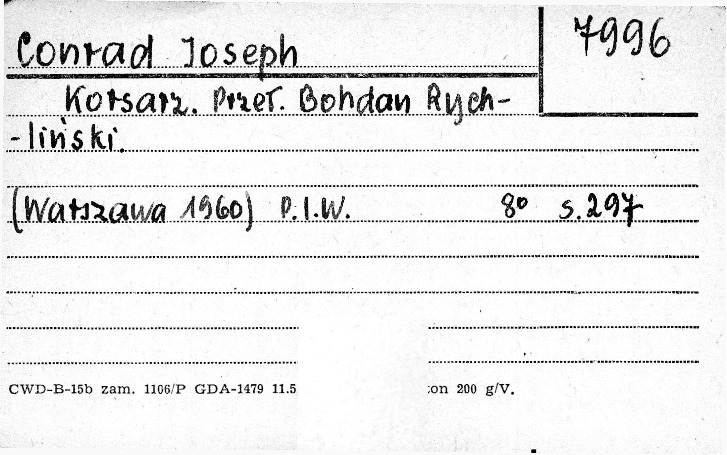 Conrad Joseph
7996
Korsarz. Przeł. Bohdan Rych-
-liński.
(Warszawa 1960) P.I.W. 8° s.297
CWD-B-15b zam. 1106/P GDA-1479 11.5 on 200 g/V.